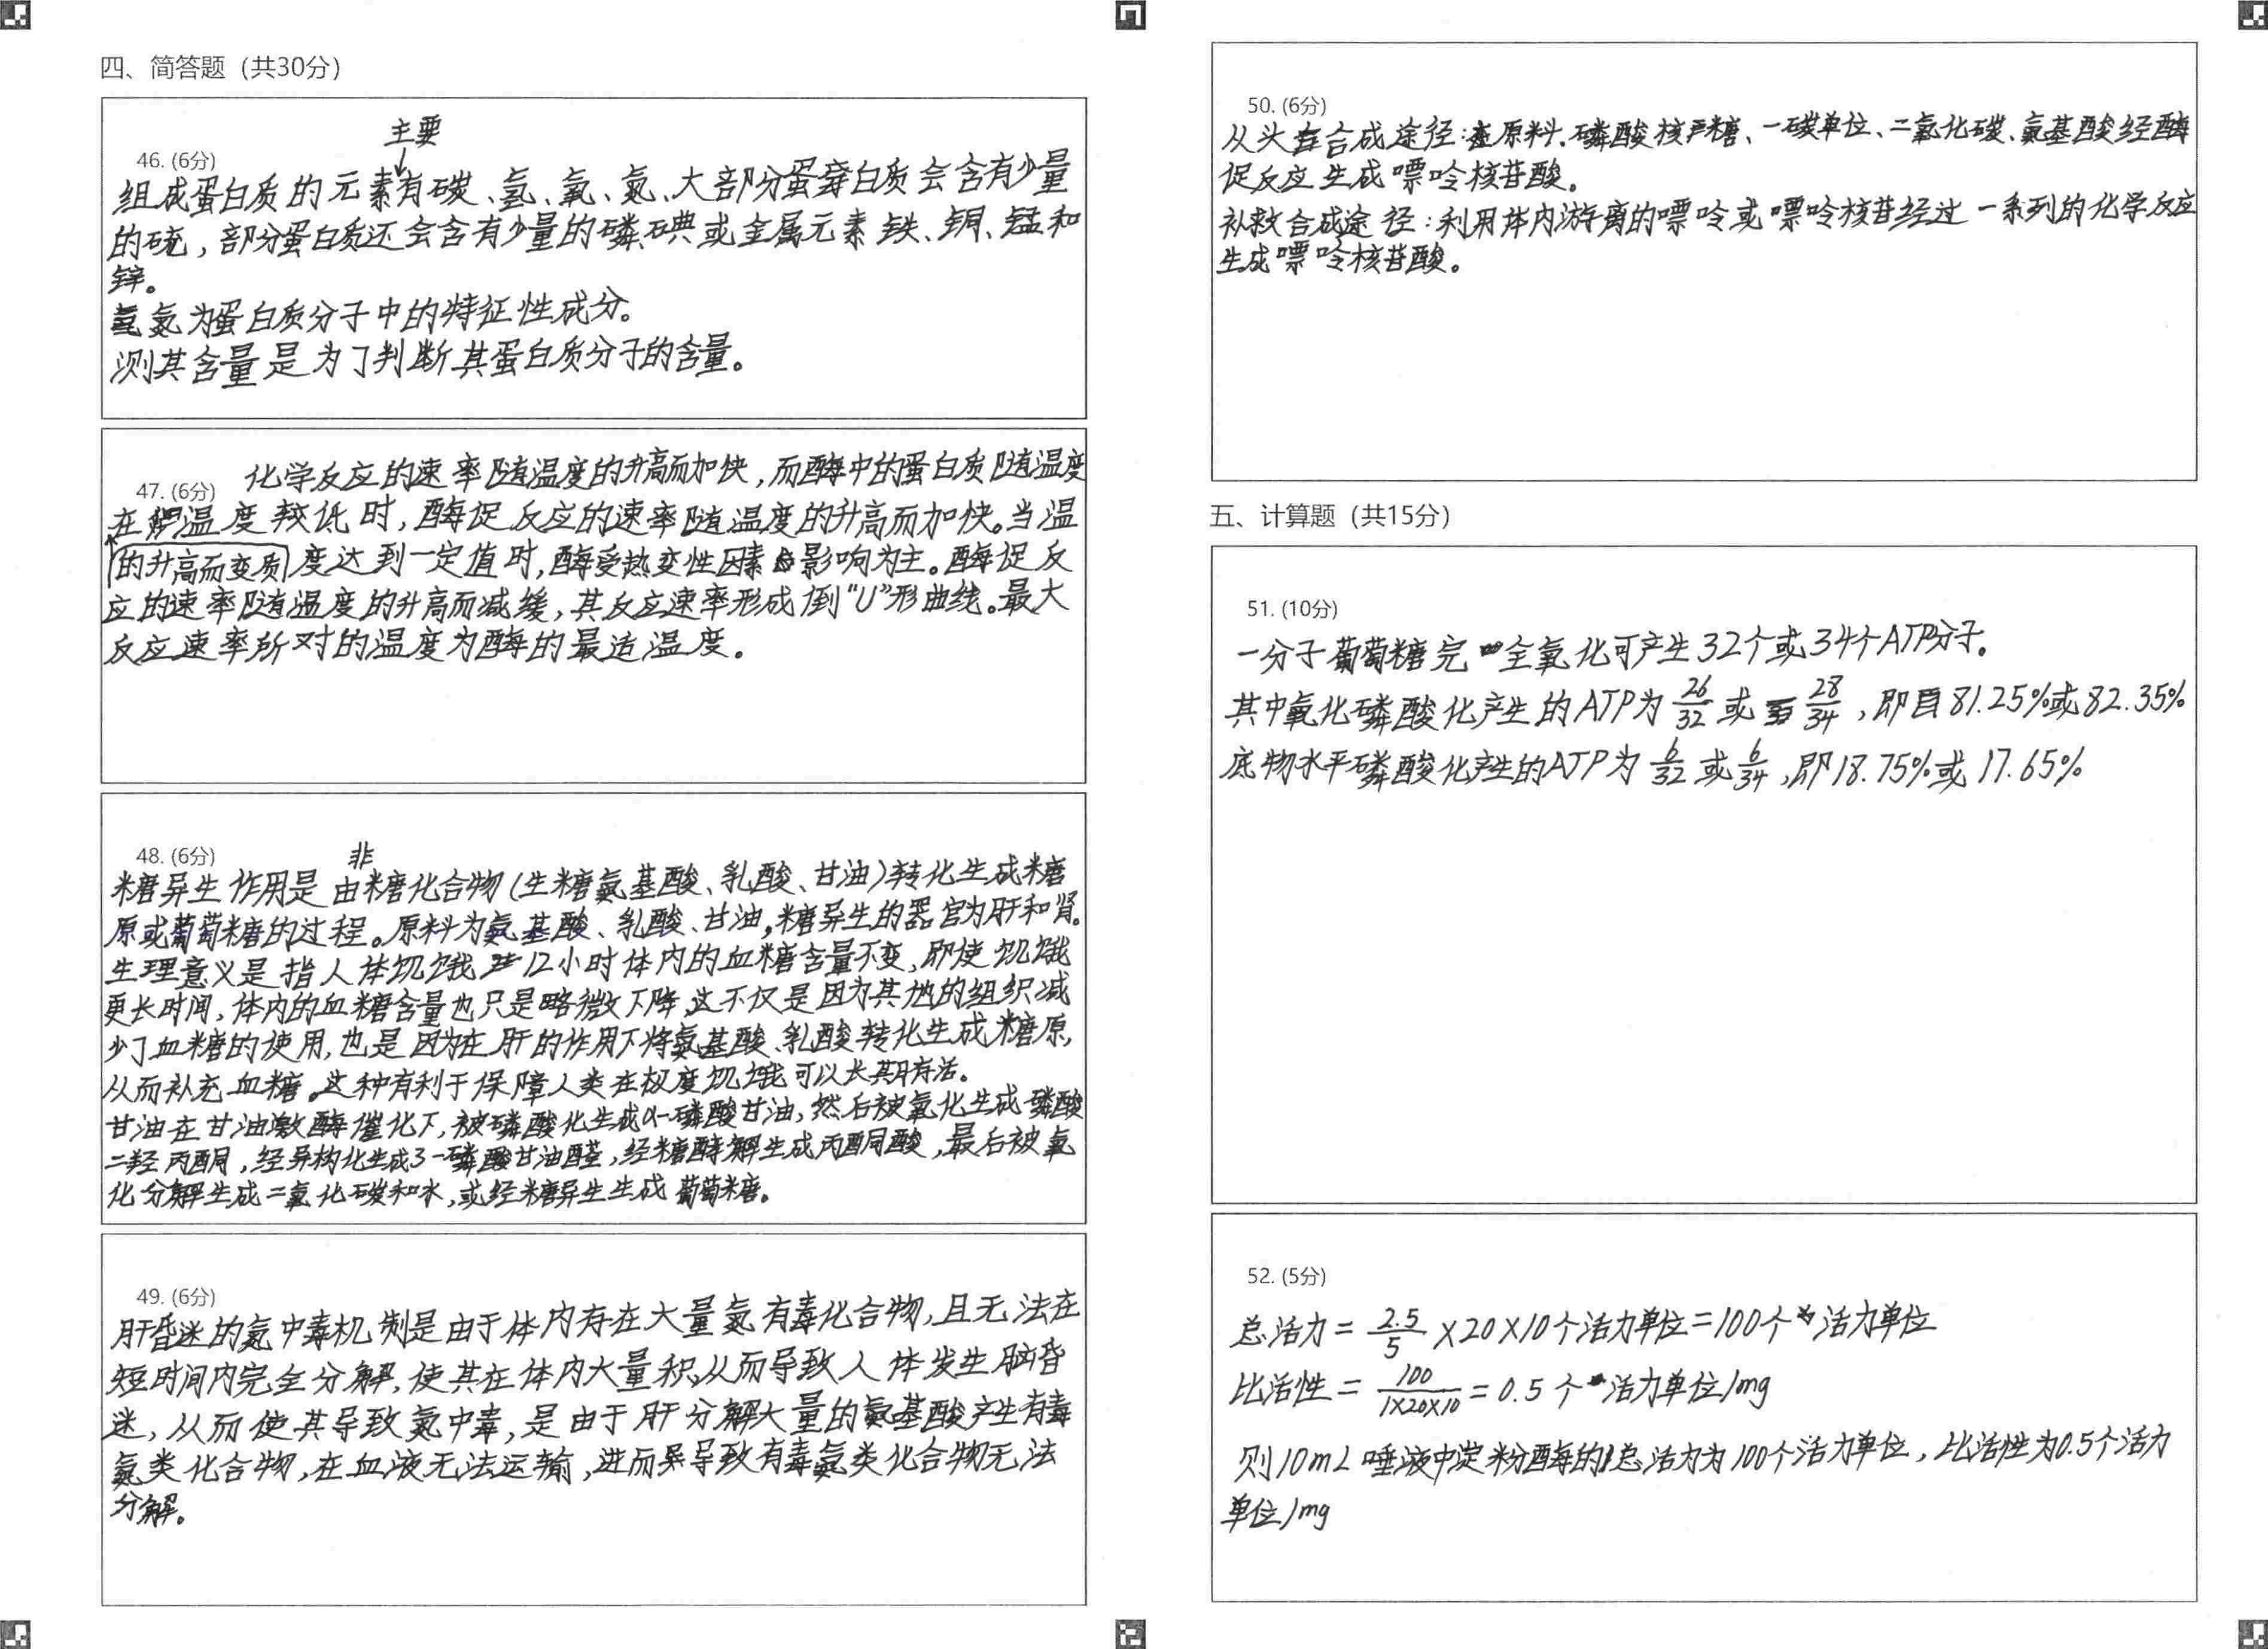 四、简答题（共30分）
主要
46. (6分)
组成蛋白质的元素有碳、氢、氧、氮、大部分蛋白质会含有少量
的硫，部分蛋白质还会含有少量的磷碘或金属元素铁、铜、锰和
锌。
氮为蛋白质分子中的特征性成分。
测其含量是为了判断其蛋白质分子的含量。
47. (6分) 化学反应的速率随温度的升高而加快，而酶中的蛋白质随温度
在温度较低时，酶促反应的速率随温度的升高而加快。当温
的升高而变质 度达到一定值时，酶受热变性因素影响为主。酶促反
应的速率随温度的升高而减缓，其反应速率形成倒“U”形曲线。最大
反应速率所对的温度为酶的最适温度。
48. (6分) 非
糖异生作用是由糖化合物(生糖氨基酸、乳酸、甘油)转化生成糖
原或葡萄糖的过程。原料为氨基酸、乳酸、甘油，糖异生的器官为肝和肾。
生理意义是指人体饥饿12小时体内的血糖含量不变，即使饥饿
更长时间，体内的血糖含量也只是略微下降，这不仅是因为其他的组织减
少了血糖的使用，也是因为在肝的作用下将氨基酸、乳酸转化生成糖原，
从而补充血糖。这种有利于保障人类在极度饥饿可以长期存活。
甘油在甘油激酶催化下，被磷酸化生成α-磷酸甘油，然后被氧化生成磷酸
二羟丙酮，经异构化生成3-磷酸甘油醛，经糖酵解生成丙酮酸，最后被氧
化分解生成二氧化碳和水，或经糖异生生成葡萄糖。
49. (6分)
肝昏迷的氨中毒机制是由于体内存在大量氮有毒化合物，且无法在
短时间内完全分解，使其在体内大量积，从而导致人体发生脑昏
迷，从而使其导致氮中毒，是由于肝分解大量的氨基酸产生有毒
氨类化合物，在血液无法运输，进而导致有毒氨类化合物无法
分解。
50. (6分)
从头合成途径：原料.磷酸核糖、一碳单位、二氧化碳、氨基酸经酶
促反应生成嘌呤核苷酸。
补救合成途径：利用体内游离的嘌呤或嘌呤核苷经过一系列的化学反应
生成嘌呤核苷酸。
五、计算题（共15分）
51. (10分)
一分子葡萄糖完全氧化可产生32个或34个ATP分子。
其中氧化磷酸化产生的ATP为 26/32 或 28/34，即81.25%或82.35%
底物水平磷酸化产生的ATP为 6/32 或 6/34，即18.75%或17.65%
52. (5分)
总活力= 2.5/5 ×20×10个活力单位=100个活力单位
比活性= 100/1×20×10 =0.5个活力单位/mg
则10mL唾液中淀粉酶的总活力为100个活力单位，比活性为0.5个活力
单位/mg